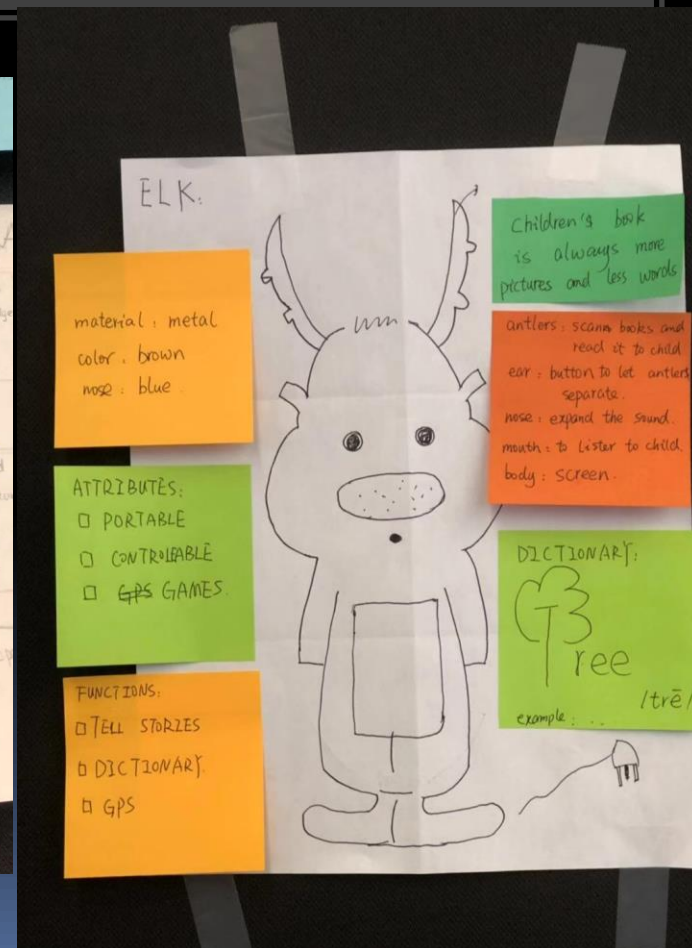 ELK:
material: metal
color: brown
nose: blue.
ATTRIBUTES:
□ PORTABLE
□ CONTROLEABLE
□ GPS GAMES.
FUNCTIONS:
□ TELL STORIES
□ DICTIONARY.
□ GPS
Children's book
is always more
pictures and less words
antlers: scann books and
read it to child
ear: button to let antlers
separate.
nose: expand the sound.
mouth: to Lister to child.
body: screen.
DICTIONARY:
Tree
/trē/
example: ...